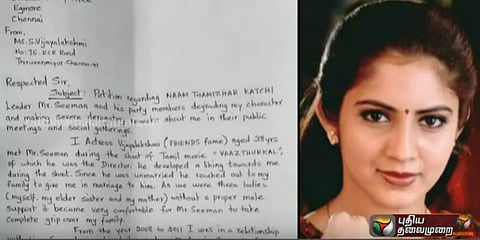 Egmore
Chennai
From,
Ms. S. Vijayalakshmi
No: 75, ECR Road
Thiruvanmiyur Chennai-41
Respected Sir,
Subject: Petition regarding NAAM THAMIZHAR KATCHI
Leader Mr. Seeman and his party members degrading my character
and making severe derogatory remarks about me in their public
meetings and social gatherings.
I Actress Vijayalakshmi (FRIENDS fame) aged 38yrs
met Mr. Seeman during the shoot of Tamil movie - "VAAZTHUKKAL",
of which he was the Director. He developed a liking towards me
during the shoot. Since he was unmarried he reached out to my
family to give me in marriage to him. As we were three ladies
(myself, my elder sister and my mother) without a proper male
support it became very comfortable for Mr. Seeman to take
complete grip over my family.
From the year 2008 to 2011 I was in a relationship
புதிய
தலைமுறை